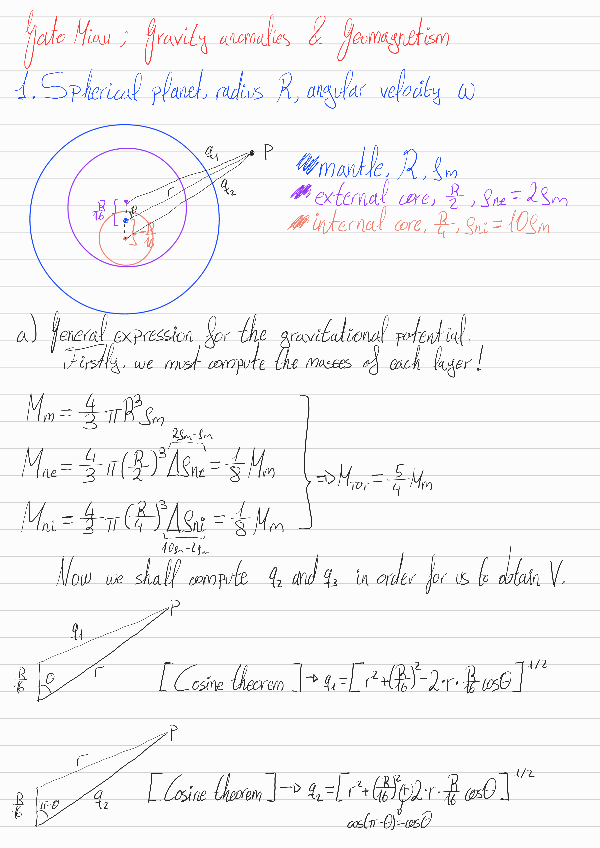 Gato Miau ; Gravity anomalies & Geomagnetism
1. Spherical planet, radius R, angular velocity ω
q1
P
r
q2
R/16
R/16
mantle, R, ρm
external core, R/2, ρne = 2ρm
internal core, R/4, ρni = 10ρm
a) General expression for the gravitational potential.
Firstly, we must compute the masses of each layer!
Mm = 4/3 · π R³ ρm
2ρm - ρm
Mne = 4/3 · π (R/2)³ Δρne = 1/8 Mm
=> MTOT = 5/4 Mm
Mni = 4/3 · π (R/4)³ Δρni = 1/8 Mm
10ρm - 2ρm
Now we shall compute q2 and q3 in order for us to obtain V.
P
q1
r
R/16
θ
[Cosine theorem] → q1 = [r² + (R/16)² - 2 · r · R/16 cosθ]^1/2
P
r
q2
R/16
π-θ
[Cosine theorem] → q2 = [r² + (R/16)² + 2 · r · R/16 cosθ]^1/2
cos(π-θ) = -cosθ